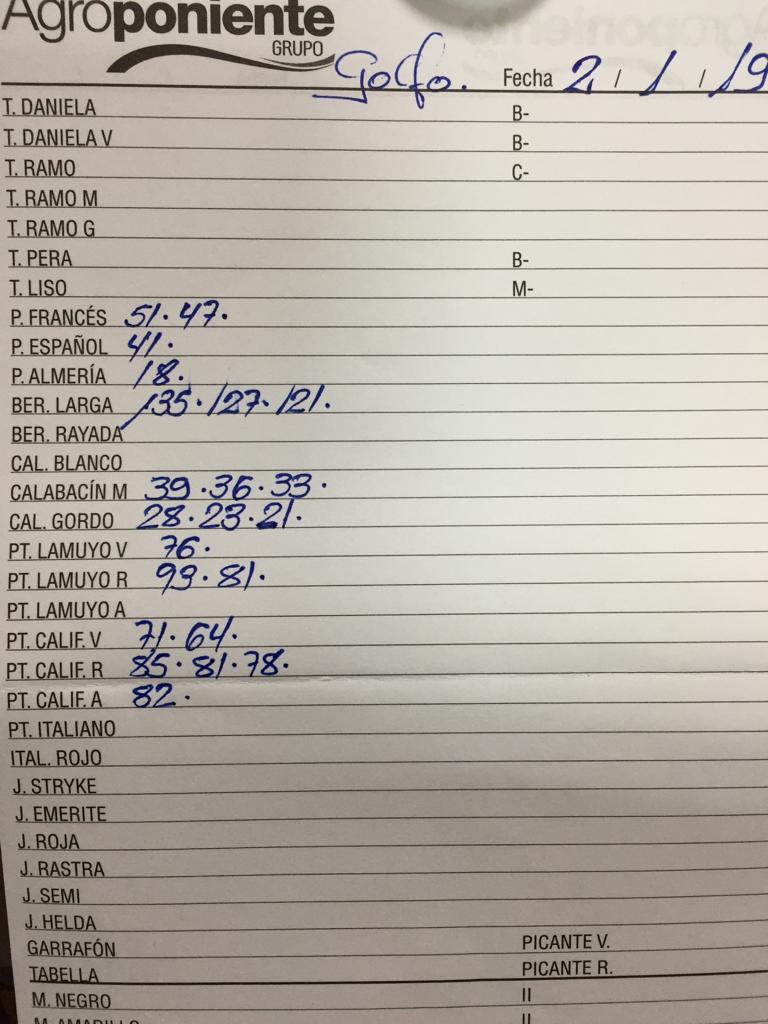 Agroponiente
GRUPO
Golfo. Fecha 2 / 1 / 19
T. DANIELA B-
T. DANIELA V B-
T. RAMO C-
T. RAMO M
T. RAMO G
T. PERA B-
T. LISO M-
P. FRANCÉS 51. 47.
P. ESPAÑOL 41.
P. ALMERÍA 18.
BER. LARGA 135. 127. 121.
BER. RAYADA
CAL. BLANCO
CALABACÍN M 39. 36. 33.
CAL. GORDO 28. 23. 21.
PT. LAMUYO V 76.
PT. LAMUYO R 93. 81.
PT. LAMUYO A
PT. CALIF. V 71. 64.
PT. CALIF. R 85. 81. 78.
PT. CALIF. A 82.
PT. ITALIANO
ITAL. ROJO
J. STRYKE
J. EMERITE
J. ROJA
J. RASTRA
J. SEMI
J. HELDA
GARRAFÓN PICANTE V.
TABELLA PICANTE R.
M. NEGRO II
M. AMARILLO II